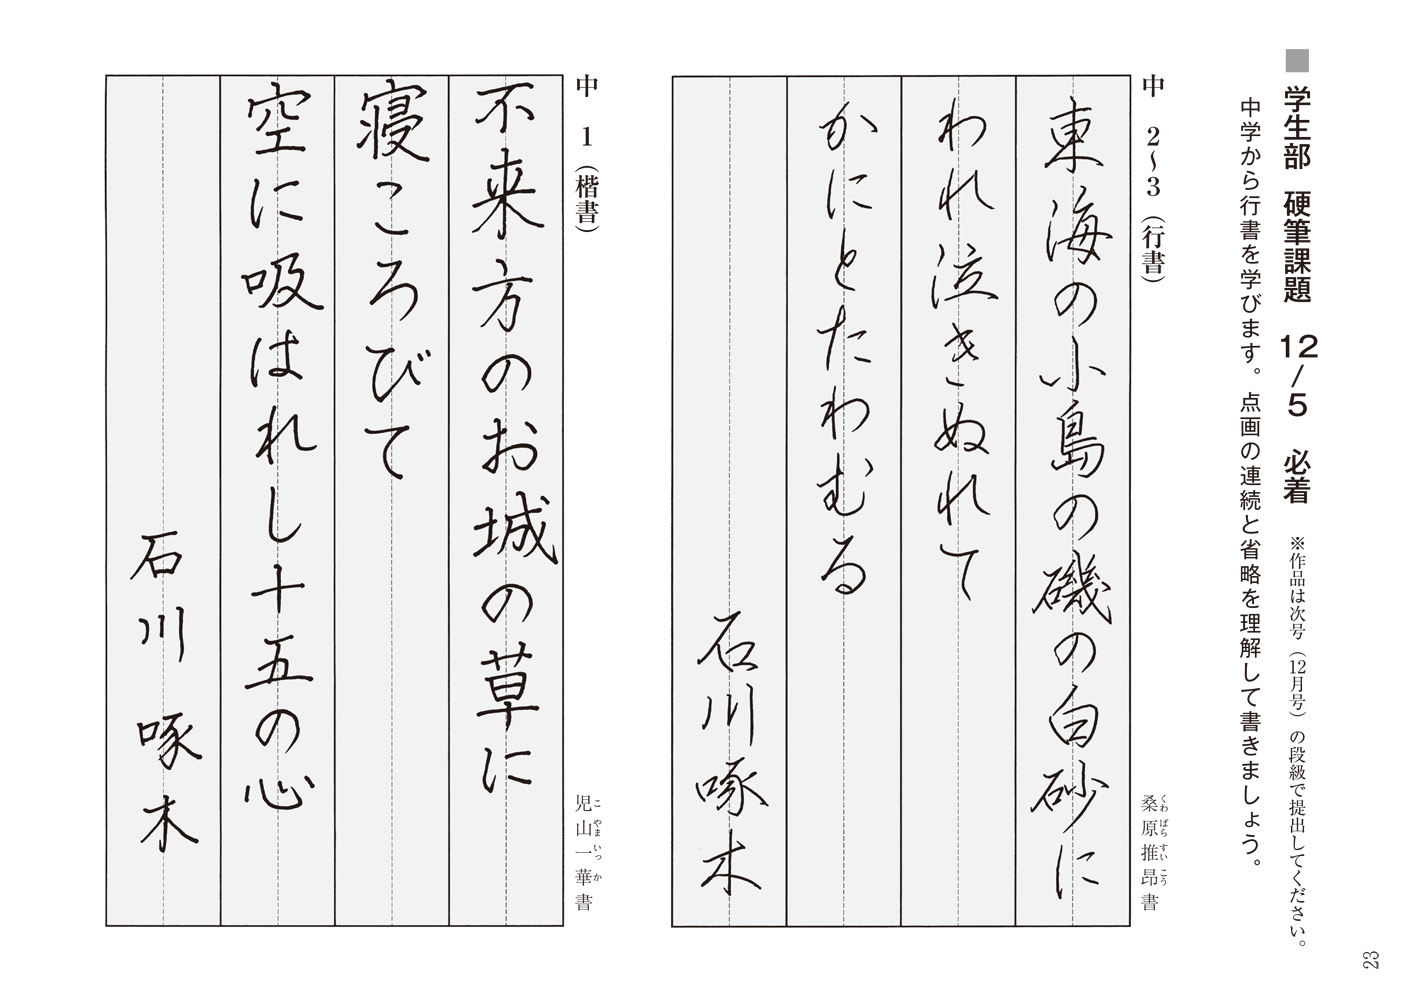 ■学生部 硬筆課題 12/5 必着 ※作品は次号（12月号）の段級で提出してください。
中学から行書を学びます。点画の連続と省略を理解して書きましょう。
中 2〜3（行書）
桑原推昂書
くわばらすいこう
東海の小島の磯の白砂に
われ泣きぬれて
かにとたわむる
石川啄木
中 1（楷書）
児山一華書
こやまいっか
不来方のお城の草に
寝ころびて
空に吸はれし十五の心
石川啄木
23